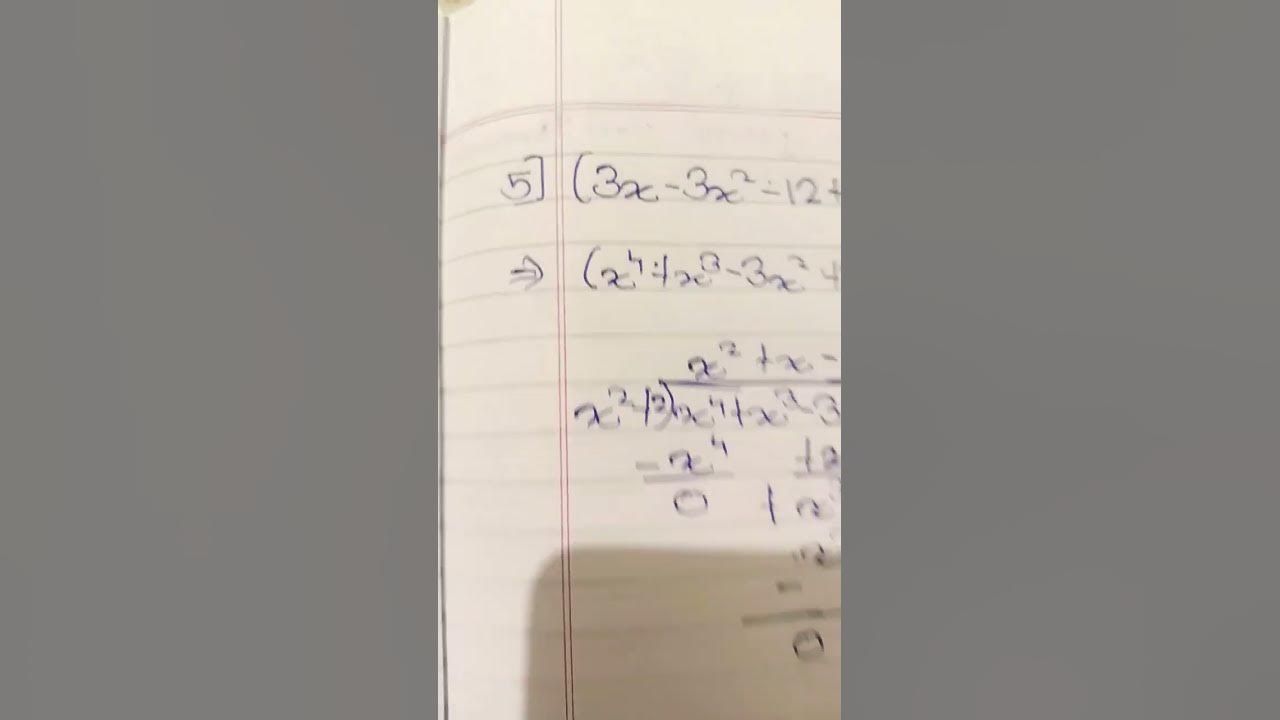 5] (3x - 3x² - 12 +
⇒ (x⁴ + x³ - 3x² +
x² + x -
x² + 3) x⁴ + x³ - 3
- x⁴
0 + x
-
0